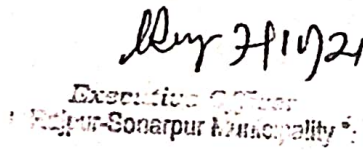 7/10/21
Executive Officer
Rajpur-Sonarpur Municipality